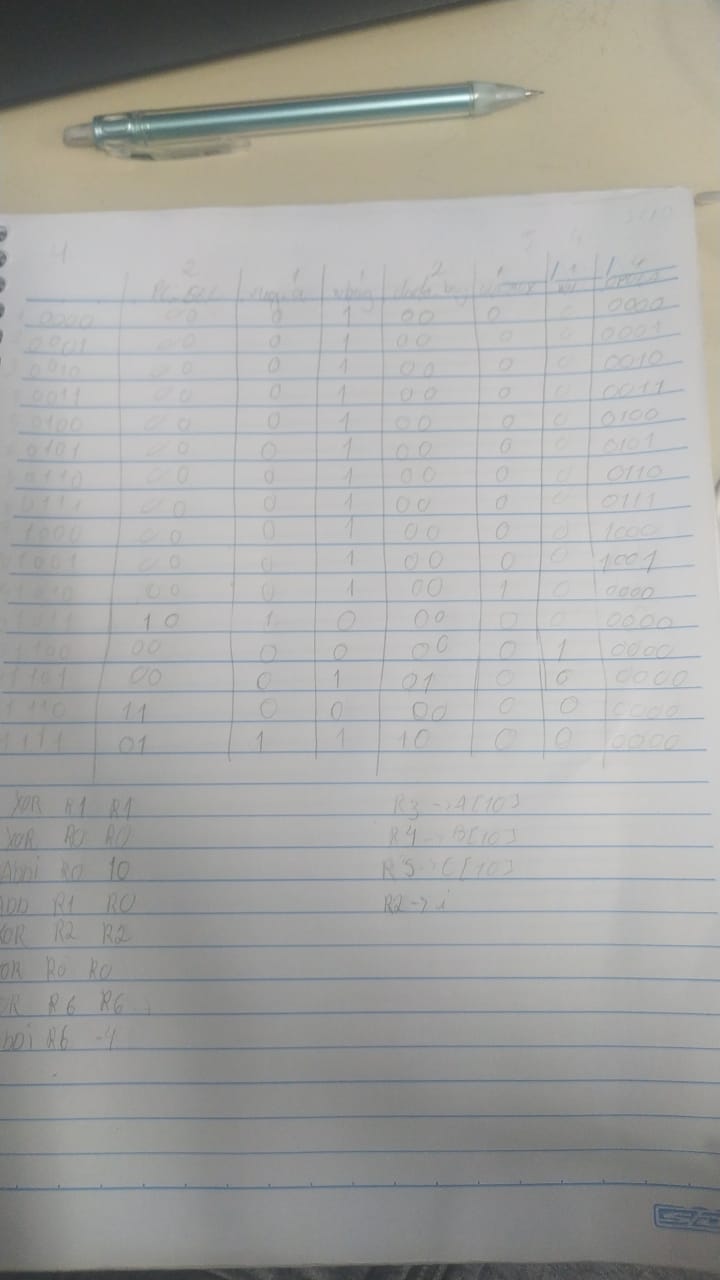 4 2 1 1 2 1 1 4
PC SRC
0000 00 0 1 00 0 0 0000
0001 00 0 1 00 0 0 0001
0010 00 0 1 00 0 0 0010
0011 00 0 1 00 0 0 0011
0100 00 0 1 00 0 0 0100
0101 00 0 1 00 0 0 0101
0110 00 0 1 00 0 0 0110
0111 00 0 1 00 0 0 0111
1000 00 0 1 00 0 0 1000
1001 00 0 1 00 0 0 1001
1010 00 0 1 00 1 0 0000
1011 10 1 0 00 0 0 0000
1100 00 0 0 00 0 1 0000
1101 00 0 1 01 0 0 0000
1110 11 0 0 00 0 0 0000
1111 01 1 1 10 0 0 0000
XOR R1 R1 R3 -> A[10]
XOR R0 R0 R4 -> B[10]
Addi R0 10 R5 -> C[10]
ADD R1 R0 R2 -> i
XOR R2 R2
OR R0 R0
OR R6 R6
ddi R6 -4